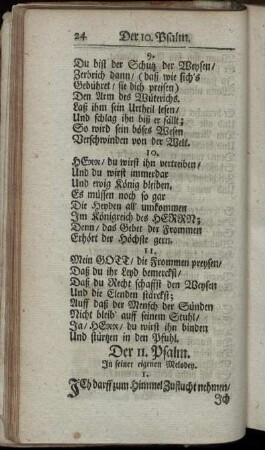 24 Der 10. Psalm.
9.
Du bist der Schutz der Weysen/
Zerbrich dann/ (daß wie sich's
Gebühret/ sie dich preisen)
Den Arm des Wüterichs.
Laß ihm sein Urtheil lesen/
Und schlag ihn biß er fällt;
So wird sein böses Wesen
Verschwinden von der Welt.
10.
HErr/ du wirst ihn vertreiben/
Und du wirst immerdar
Und ewig König bleiben.
Es müssen noch so gar
Die Heyden all umkommen
Im Königreich des HERRN;
Denn/ das Gebet der Frommen
Erhört der Höchste gern.
11.
Mein GOTT/ die Frommen preysen/
Daß du ihr Leyd bemerckst/
Daß du Recht schaffst den Weysen
Und die Elenden stärckst;
Auff daß der Mensch der Sünden
Nicht bleib' auff seinem Stuhl/
Ja/ HErr/ du wirst ihn binden
Und stürtzen in den Pfuhl.
Der 11. Psalm.
In seiner eigenen Melodey.
1.
ICh darff zum Himmel Zuflucht nehmen/
Ich